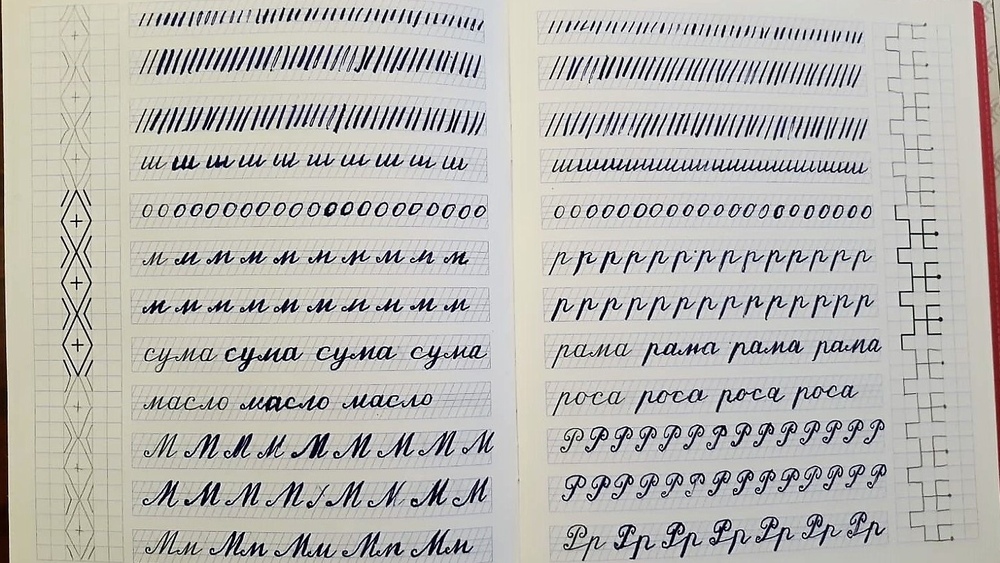 ш ш ш ш ш ш ш ш ш ш
о о о о о о о о о о о о о о о о о о о о о
м м м м м м м м м м
м м м м м м м м м м
сума сума сума сума
масло масло масло
М М М М М М М М М
М М М М М М М М
Мм Мм Мм Мм Мм
шшшшшшшшшшшшшш
о о о о о о о о о о о о о о о о о о о о
р р р р р р р р р р р р р
р р р р р р р р р р р р р
рама рама рама рама
роса роса роса роса
Р Р Р Р Р Р Р Р Р Р Р Р Р
Р Р Р Р Р Р Р Р Р Р Р Р Р
Рр Рр Рр Рр Рр Рр Рр